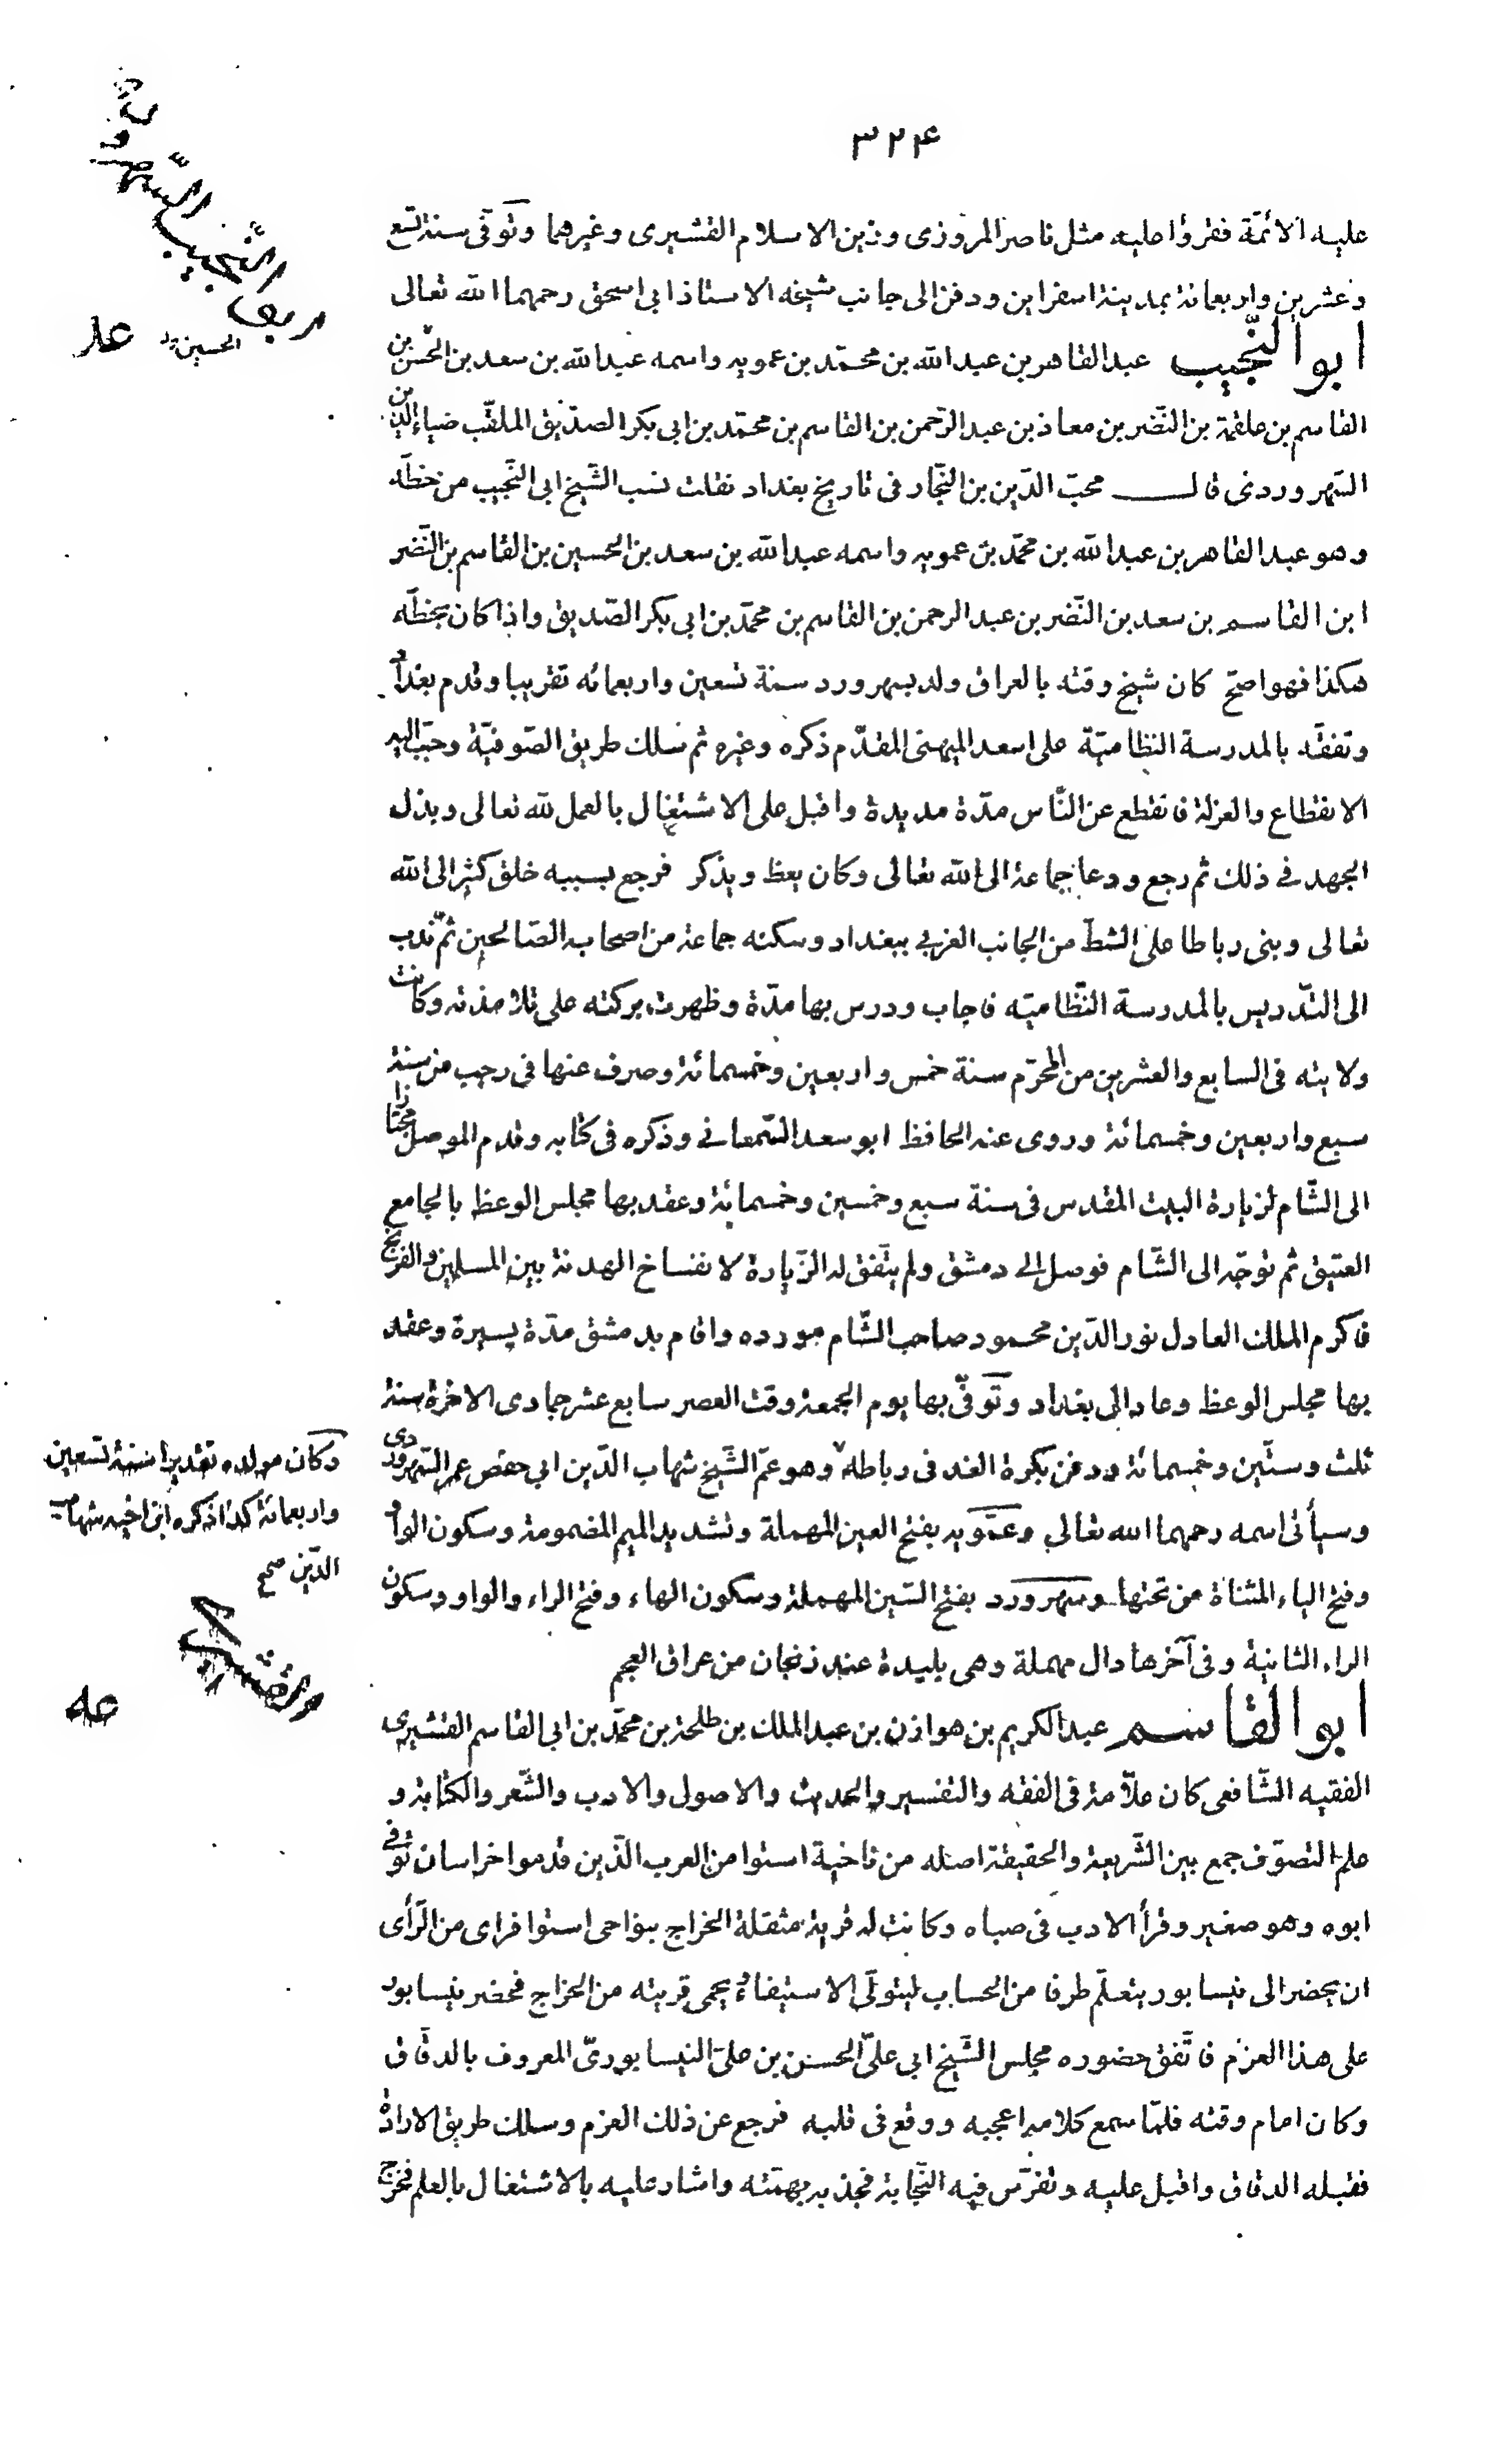 ۳۲۴
عليه الائمّة فقرؤا عليه مثل ناصر المروزى وزين الاسلام القشيرى وغيرهما وتوفى سنة تسع
وعشرين واربعمائة بمدينة اسفراين ودفن الى جانب شيخه الاستاذ ابى اسحق رحمهما الله تعالى
ابو النّجيب عبد القاهر بن عبد الله بن محمّد بن عمويه واسمه عبد الله بن سعد بن الحسن بن
القاسم بن علقمة بن النّضر بن معاذ بن عبد الرّحمن بن القاسم بن محمّد بن ابى بكر الصدّيق الملقّب ضياء الدين
السّهروردى قال محبّ الدّين بن النجّار فى تاريخ بغداد نقلت نسب الشّيخ ابى النّجيب من خطّه
وهو عبد القاهر بن عبد الله بن محمّد بن عمويه واسمه عبد الله بن سعد بن الحسين بن القاسم بن النّضر
ابن القاسم بن سعد بن النّضر بن عبد الرحمن بن القاسم بن محمّد بن ابى بكر الصّديق واذا كان بخطّه
هكذا فهو اصحّ كان شيخ وقته بالعراق ولد بسهرورد سنة تسعين واربعمائه تقريبا وقدم بغداد
وتفقّه بالمدرسة النظاميّة على اسعد الميهنى المقدّم ذكره وغيره ثم سلك طريق الصّوفيّة وحبّب اليه
الانقطاع والعزلة فانقطع عن النّاس مدّة مديدة واقبل على الاشتغال بالعمل لله تعالى وبذل
الجهد فى ذلك ثم رجع ودعا جماعة الى الله تعالى وكان يعظ ويذكر فرجع بسببه خلق كثير الى الله
تعالى وبنى رباطا على الشطّ من الجانب الغربى ببغداد وسكنه جماعة من اصحابه الصّالحين ثمّ ندب
الى التّدريس بالمدرسة النّظاميّه فاجاب ودرس بها مدّة وظهرت بركته على تلامذته وكانت
ولايته فى السابع والعشرين من المحرّم سنة خمس واربعين وخمسمائة وصرف عنها فى رجب من سنة
سبع واربعين وخمسمائة وروى عنه الحافظ ابو سعد السّمعانى وذكره فى كتابه وقدم الموصل مجتازا
الى الشّام لزيارة البيت المقدس فى سنة سبع وخمسين وخمسمائة وعقد بها مجلس الوعظ بالجامع
العتيق ثم توجّه الى الشّام فوصل الى دمشق ولم يتّفق له الزّيارة لانفساخ الهدنة بين المسلمين والفرنج
فاكرم الملك العادل نور الدّين محمود صاحب الشّام مورده واقام بدمشق مدّة يسيرة وعقد
بها مجلس الوعظ وعاد الى بغداد وتوفّى بها يوم الجمعة وقت العصر سابع عشر جمادى الاخرة سنة
ثلث وستّين وخمسمائة ودفن بكرة الغد فى رباطه وهو عمّ الشّيخ شهاب الدّين ابى حفص عمر السّهروردى
وسيأتى اسمه رحمهما الله تعالى وعمّويه بفتح العين المهملة وتشديد الميم المضمومة وسكون الواو
وفتح الياء المثناة من تحتها وسهرورد بفتح السّين المهملة وسكون الهاء وفتح الراء والواو وسكون
الراء الثانية وفى آخرها دال مهملة وهى بليدة عند زنجان من عراق العجم
ابو القاسم عبد الكريم بن هوازن بن عبد الملك بن طلحة بن محمّد بن ابى القاسم القشيرى
الفقيه الشّافعى كان علاّمة فى الفقه والتفسير والحديث والاصول والادب والشّعر والكتابة و
علم التصوّف جمع بين الشّريعة والحقيقة اصله من ناحية استوا من العرب الّذين قدموا خراسان توفى
ابوه وهو صغير وقرأ الادب فى صباه وكانت له قرية مثقلة الخراج بنواحى استوا فراى من الرّأى
ان يحضر الى نيسابور يتعلّم طرفا من الحساب ليتولّى الاستيفاء ويحمى قريته من الخراج فحضر نيسابور
على هذا العزم فاتّفق حضوره مجلس الشّيخ ابى علىّ الحسن بن علىّ النيسابورىّ المعروف بالدقّاق
وكان امام وقته فلمّا سمع كلامه اعجبه ووقع فى قلبه فرجع عن ذلك العزم وسلك طريق الارادة
فقبله الدقاق واقبل عليه وتفرّس فيه النّجابة فجذبه بهمّته واشار عليه بالاشتغال بالعلم فخرج
النّجيب السّهرورد
الحسين
وكان مولده تقديرا سنة تسعين
واربعمائة كذا ذكره ابن اخيه شهاب
الدّين صح
القشيرى